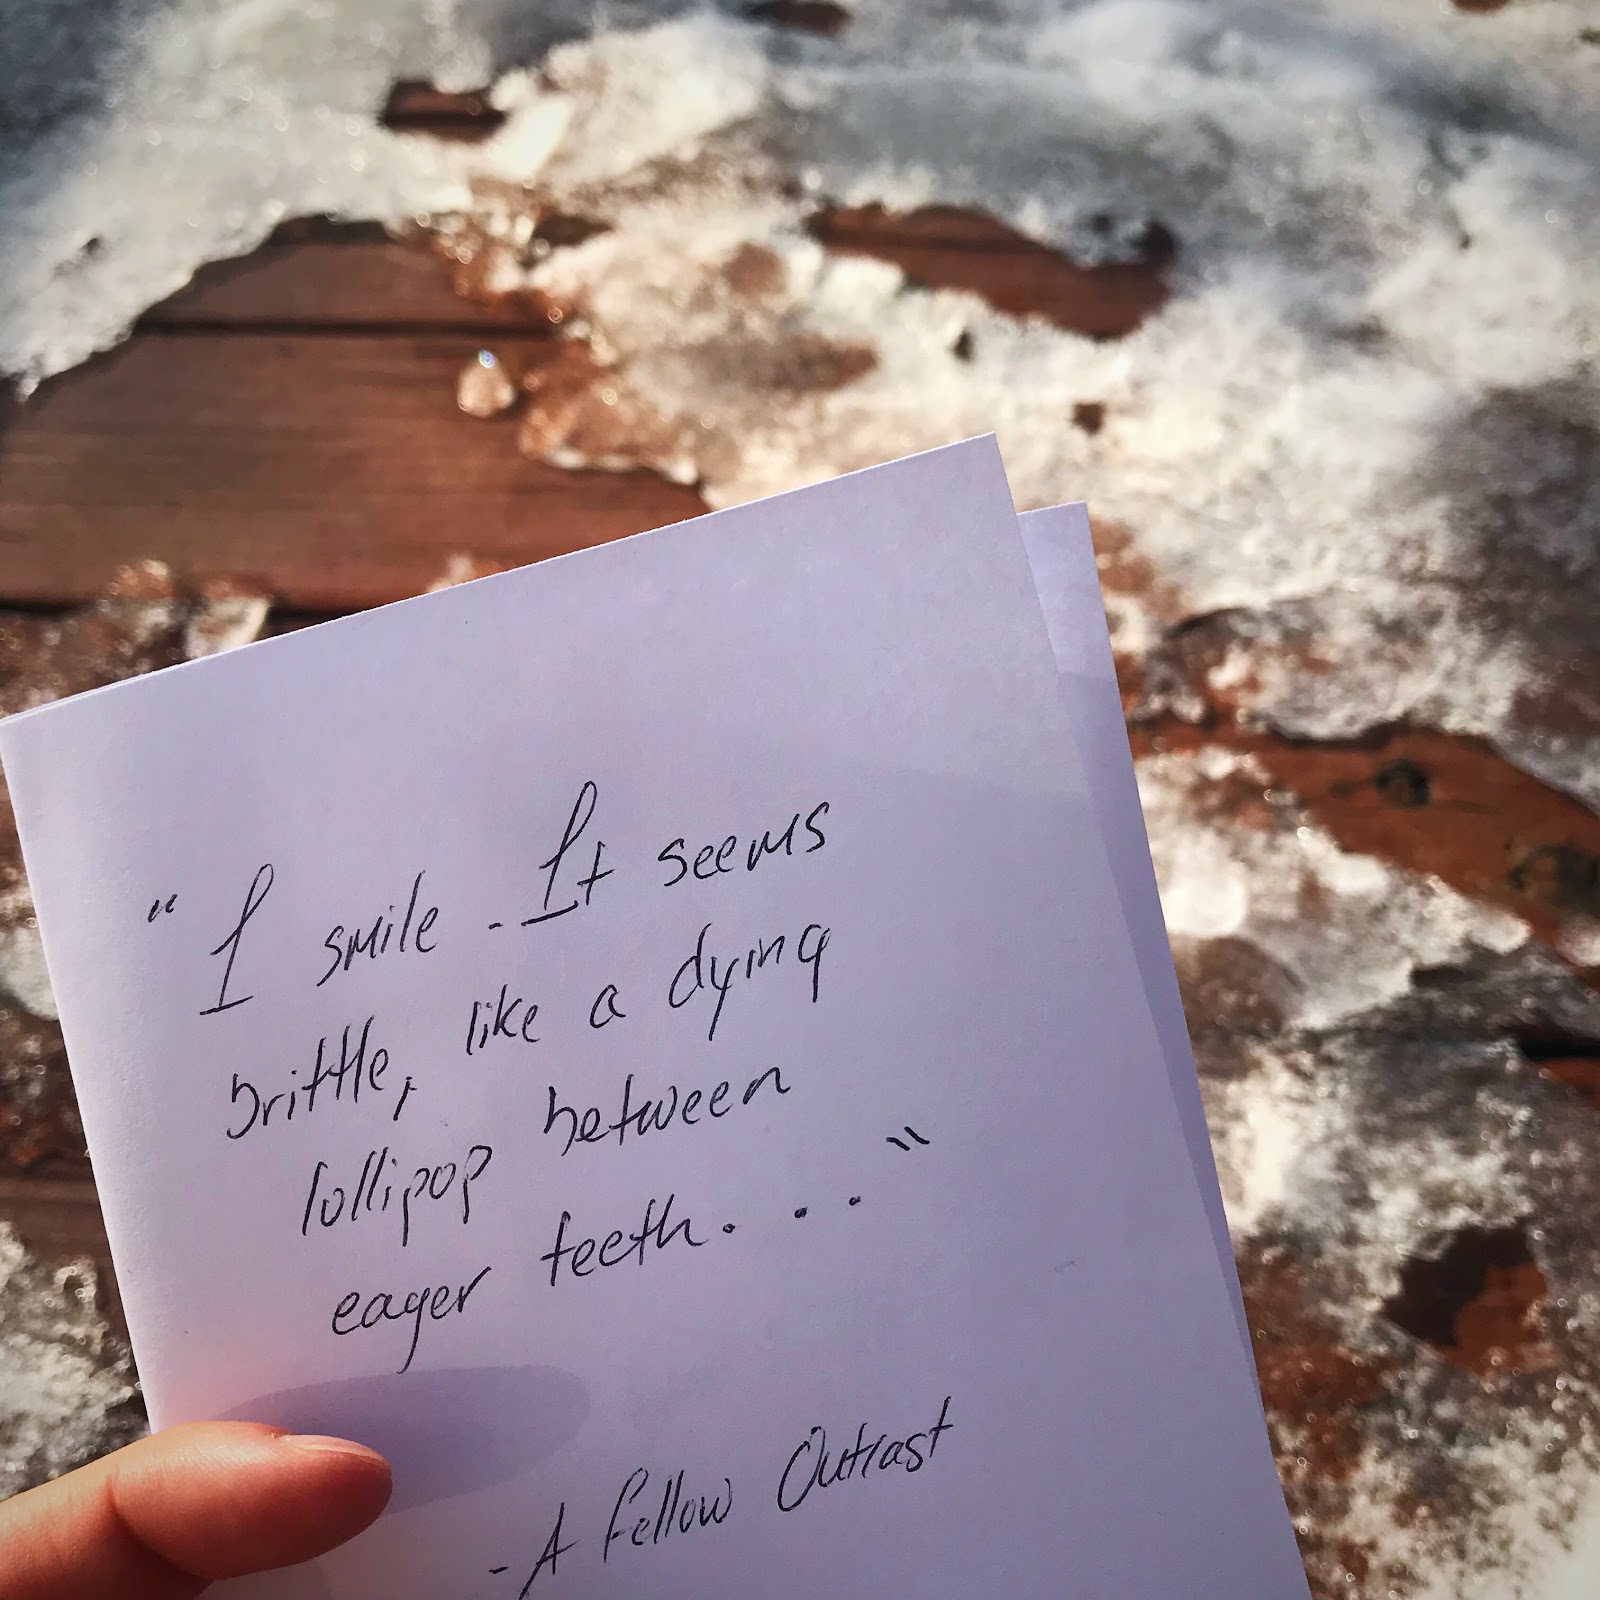 "I smile. It seems
brittle, like a dying
lollipop between
eager teeth. . . ."
- A Fellow Outcast